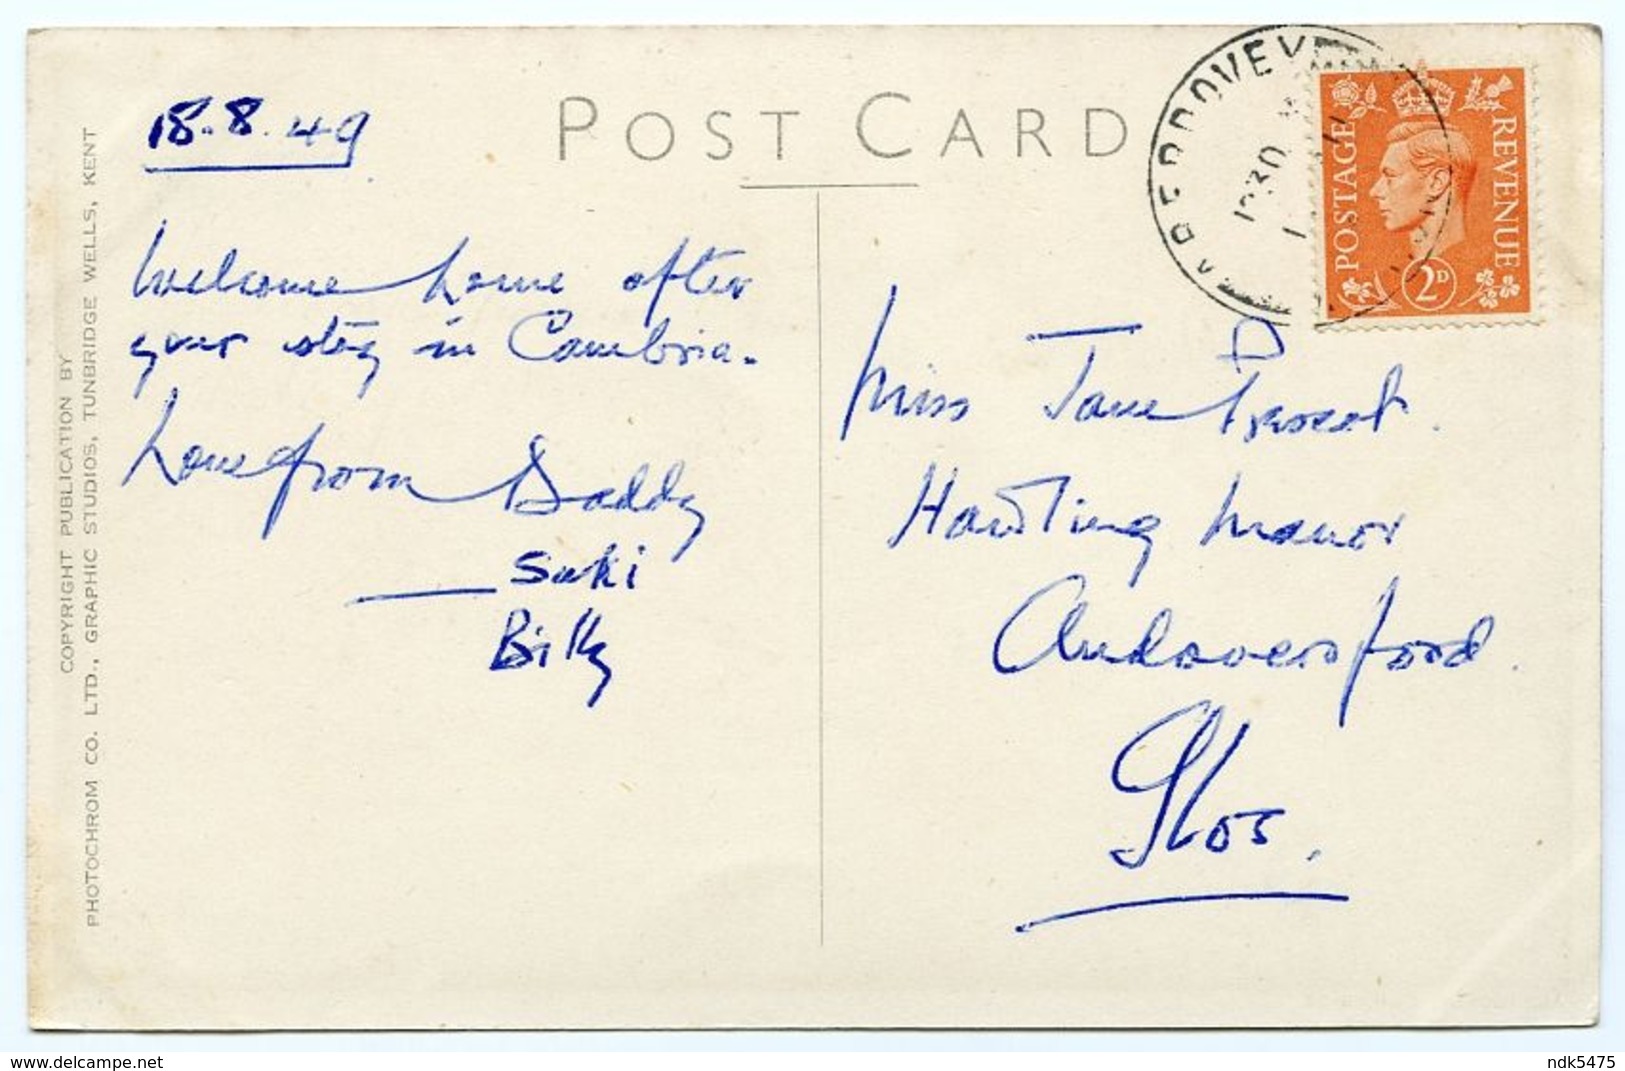 POST CARD
18.8.49
Welcome home after
your stay in Cambria.
Love from Daddy
Suki
Billy
Miss Jane D
Hawling Manor
Andoversford.
Glos.
ABERDOVEY
POSTAGE
REVENUE
2D
COPYRIGHT PUBLICATION BY
PHOTOCHROM CO. LTD., GRAPHIC STUDIOS, TUNBRIDGE WELLS, KENT
www.delcampe.net
ndk5475